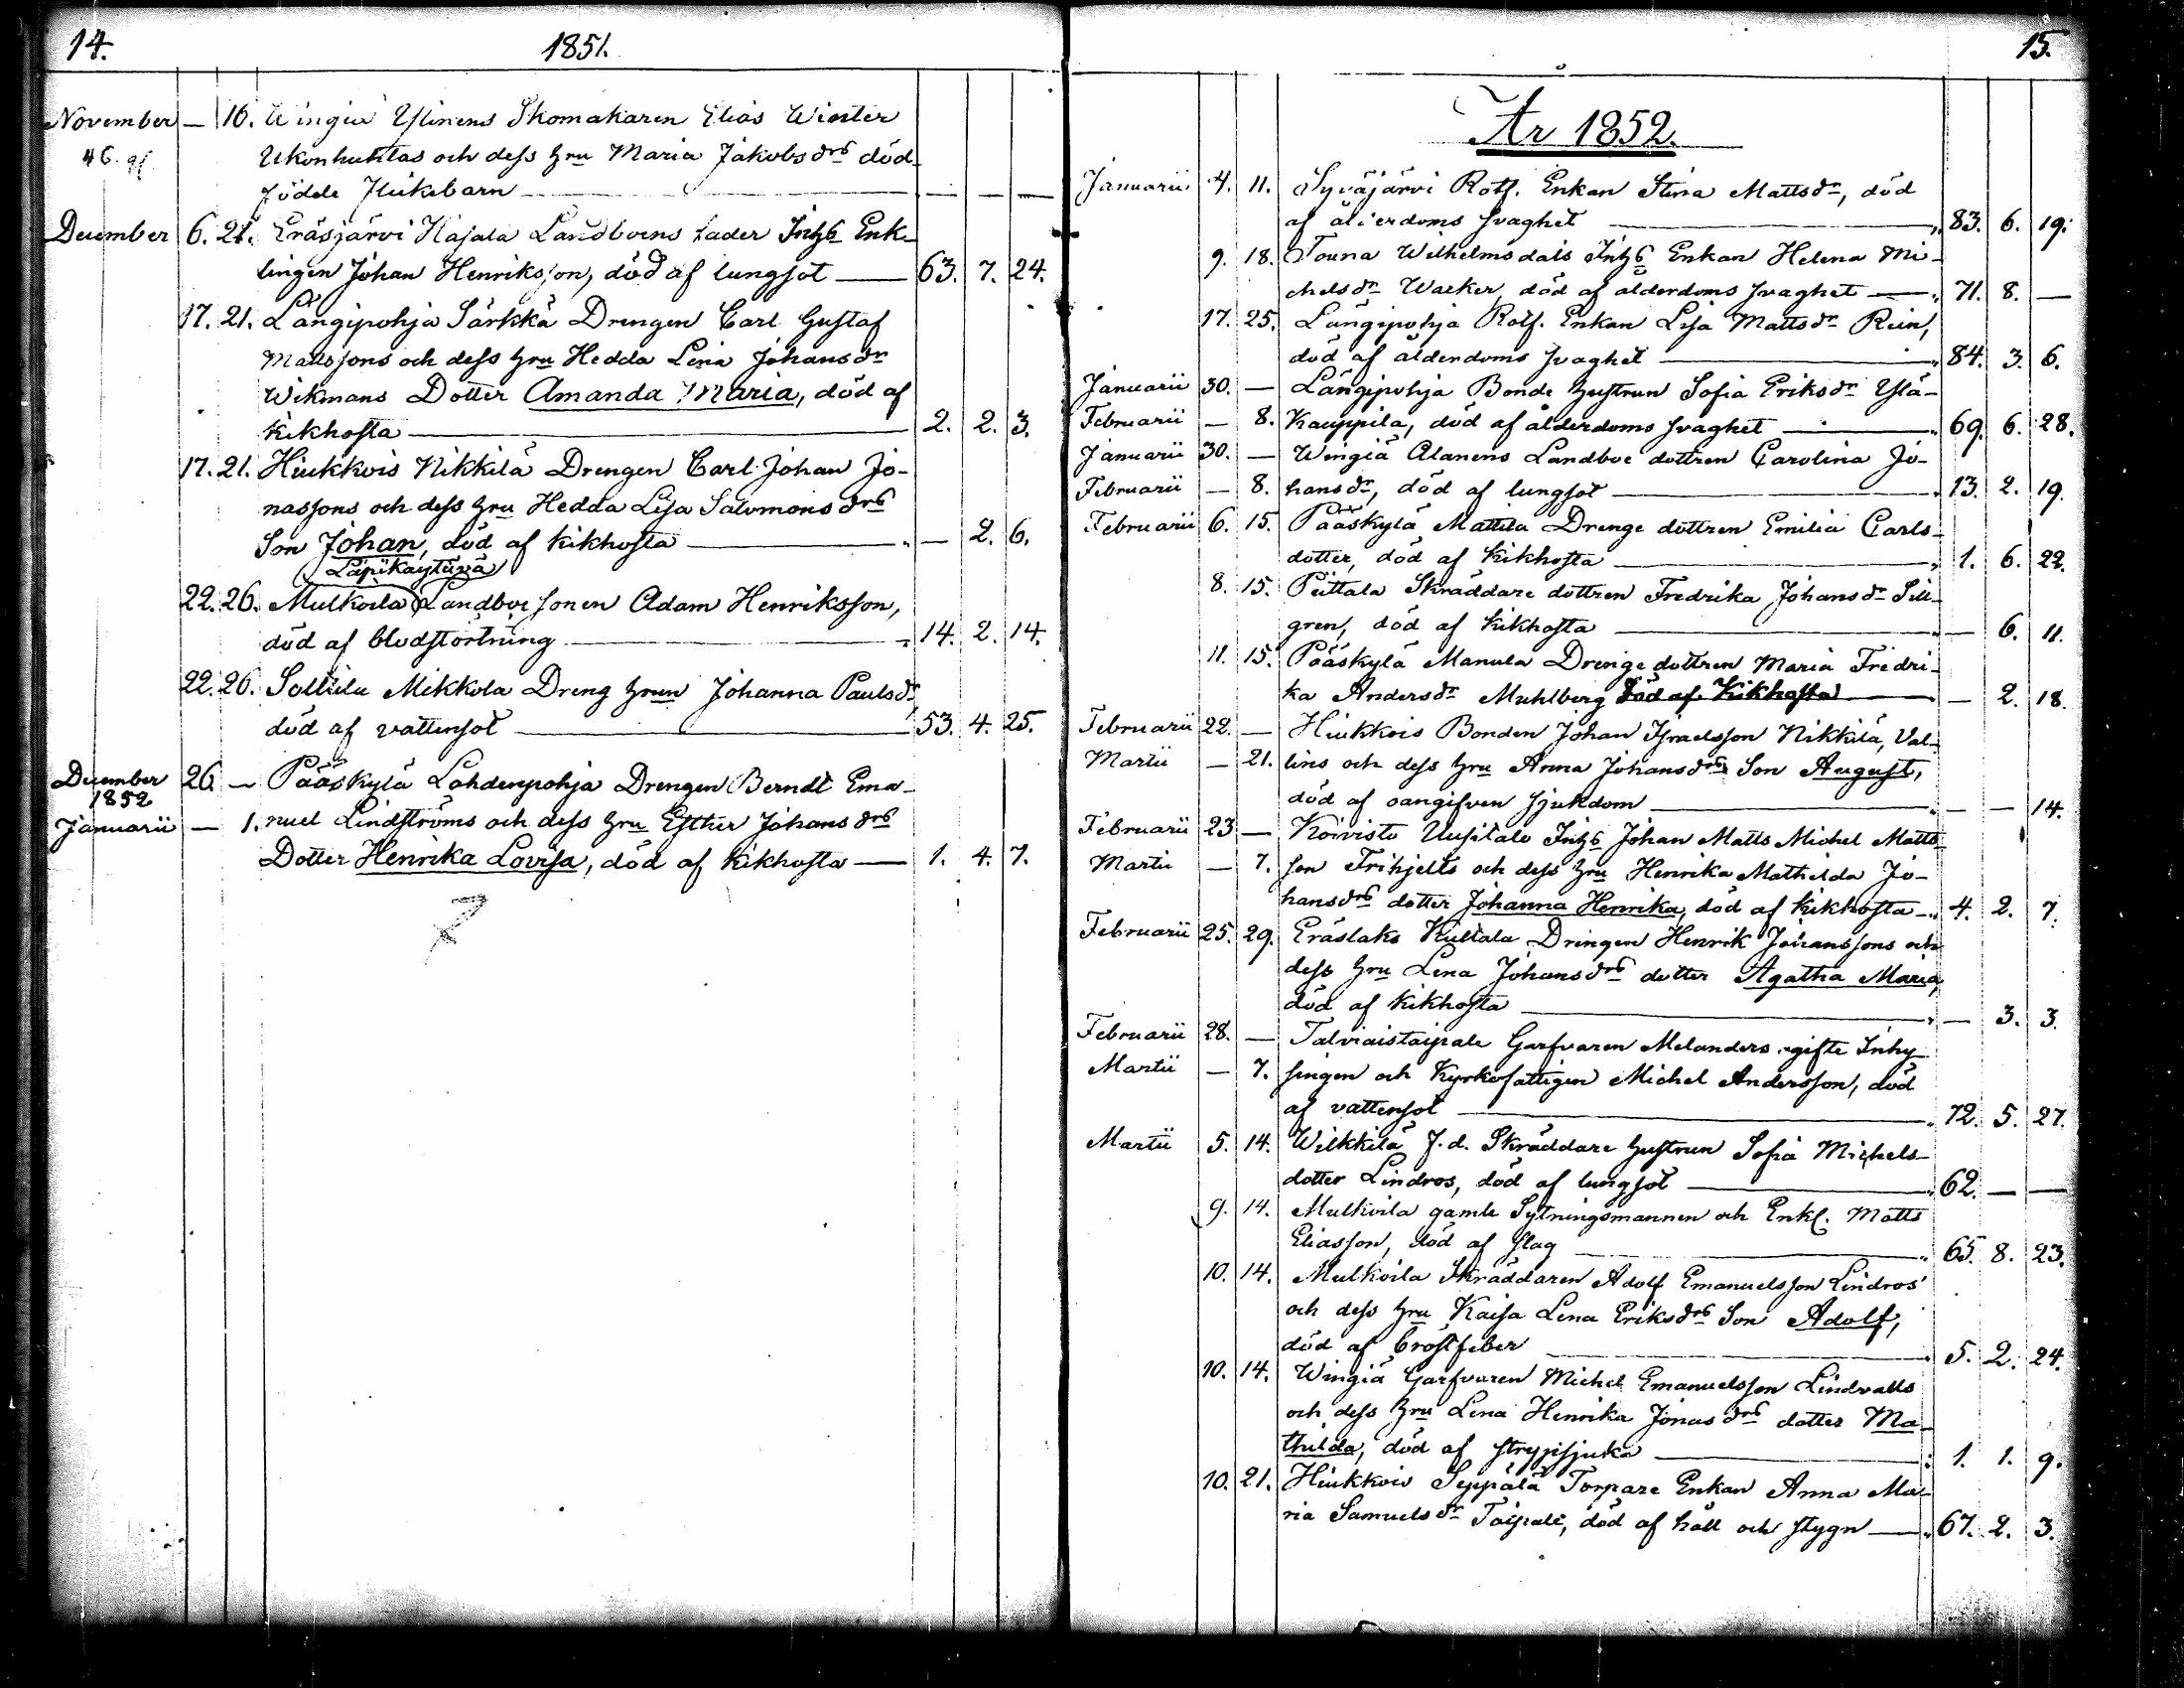 14. 1851.
November — 16. Wingiä Ylinens Skomakaren Elias Winter
46. Ukonhuhtas och dess hru Maria Jakobsdrs död
födde flickebarn — — —
December 6. 21. Eräsjärvi Hajala Landboens fader Inhs Enk-
lingen Johan Henriksson, död af lungsot — 63. 7. 24.
17. 21. Längipohja Särkkä Drengen Carl Gustaf
Mattssons och dess hru Hedda Lena Johansdr
Wikmans Dotter Amanda Maria, död af
kikhosta — 2. 2. 3.
17. 21. Hiukkois Nikkilä Drengen Carl Johan Jo-
nassons och dess hru Hedda Lisa Salomonsdrs
Son Johan, död af kikhosta — — 2. 6.
Läpikäytävä
22. 26. Mulkoila Landboe sonen Adam Henriksson,
död af blodstörtning — 14. 2. 14.
22. 26. Solttila Mikkola Dreng hrun Johanna Paulsdr,
död af vattensot — 53. 4. 25.
December 26. — Pääskylä Lahdenpohja Drengen Berndt Ema-
1852
Januarii — 1. nuel Lindströms och dess hru Esther Johansdrs
Dotter Henrika Lovisa, död af kikhosta — 1. 4. 7.
15.
År 1852.
Januarii 4. 11. Syväjärvi Rotf. Enkan Stina Mattsdr, död
af ålderdoms svaghet — 83. 6. 19.
9. 18. Touna Wilhelmsdals Inhs Enkan Helena Mi-
chelsdr Wacker, död af ålderdoms svaghet — 71. 8. —
17. 25. Längipohja Rotf. Enkan Lisa Mattsdr Rein,
död af ålderdoms svaghet — 84. 3. 6.
Januarii 30. — Längipohja Bonde hustrun Sofia Eriksdr Ylä-
Februarii — 8. Kauppila, död af ålderdoms svaghet — 69. 6. 28.
Januarii 30. — Wingiä Alanens Landboe dottren Carolina Jo-
Februarii — 8. hansdr, död af lungsot — 13. 2. 19.
Februarii 6. 15. Pääskylä Mattila Drenge dottren Emilia Carls-
dotter, död af kikhosta — 1. 6. 22.
8. 15. Puttala Skräddare dottren Fredrika Johansdr Sill-
gren, död af kikhosta — — 6. 11.
11. 15. Pääskylä Manula Drenge dottren Maria Fredri-
ka Andersdr Muhlberg död af Kikhosta — — 2. 18.
Februarii 22. — Hiukkois Bonden Johan Israelsson Nikkilä, Val-
Martii — 21. lins och dess hru Anna Johansdrs Son August,
död af oangifven sjukdom — — — 14.
Februarii 23 — Koivisto Uusitalo Inhs Johan Matts Michel Matts-
Martii — 7. son Frihjelts och dess hru Henrika Mathilda Jo-
hansdrs dotter Johanna Henrika, död af kikhosta — 4. 2. 7.
Februarii 25. 29. Eräslaks Kuttala Drengen Henrik Johanssons och
dess hru Lena Johansdrs dotter Agatha Maria,
död af kikhosta — — 3. 3.
Februarii 28. — Talviaistaipale Garfvaren Melanders gifte Inhy-
Martii — 7. singen och Kyrkofattigen Michel Andersson, död
af vattensot — 72. 5. 27.
Martii 5. 14. Wilkkilä f.d. Skräddare hustrun Sofia Michels-
dotter Lindros, död af lungsot — 62. — —
9. 14. Mulkoila gamle Sytningsmannen och Enkl. Matts
Eliasson, död af slag — 65. 8. 23.
10. 14. Mulkoila Skräddaren Adolf Emanuelsson Lindros
och dess hru Kaisa Lena Eriksdrs Son Adolf,
död af bröstfeber — 5. 2. 24.
10. 14. Wingiä Garfvaren Michel Emanuelsson Lindvalls
och dess hru Lena Henrika Jonasdrs dotter Ma-
thilda, död af strypsjuka — 1. 1. 9.
10. 21. Hiukkois Seppälä Torpare Enkan Anna Ma-
ria Samuelsdr Taipale, död af håll och stygn — 67. 2. 3.